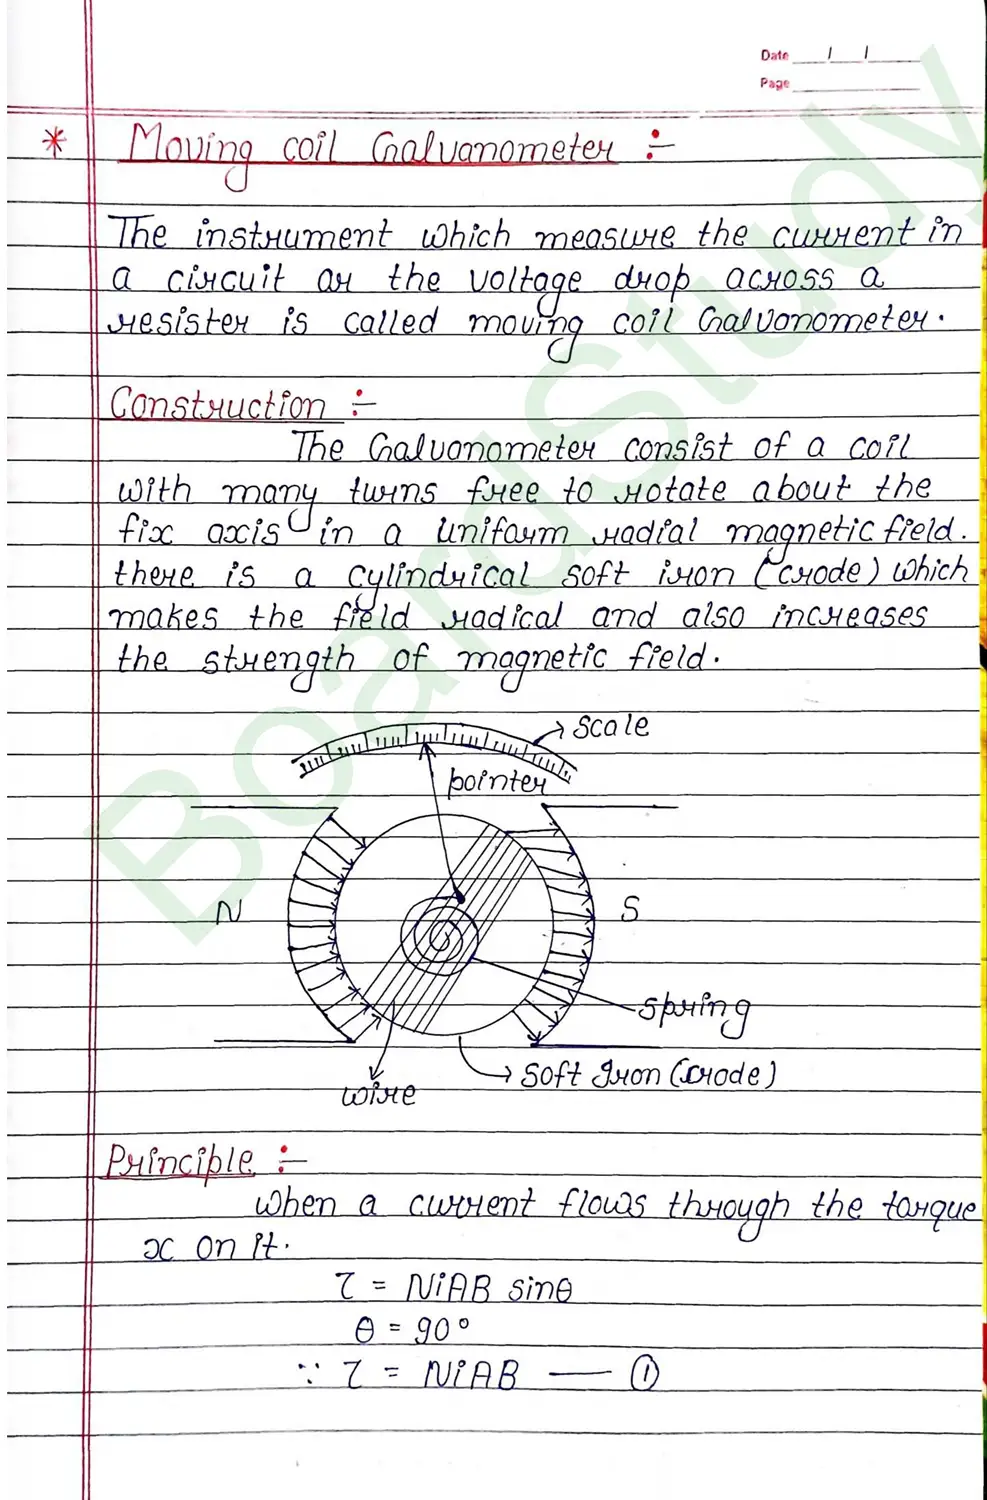 Date / /
Page
* Moving coil Galvanometer :-
The instrument which measure the current in
a circuit or the voltage drop across a
resister is called moving coil Galvonometer.
Construction :-
The Galvonometer consist of a coil
with many turns free to rotate about the
fix axis in a uniform radial magnetic field.
there is a cylindrical soft iron (crode) which
makes the field radical and also increases
the strength of magnetic field.
scale
pointer
N
S
spring
soft Iron (crode)
wire
Principle :-
when a current flows through the torque
x on it.
τ = NiAB sinθ
θ = 90°
∵ τ = NiAB — ①
BoardStudy